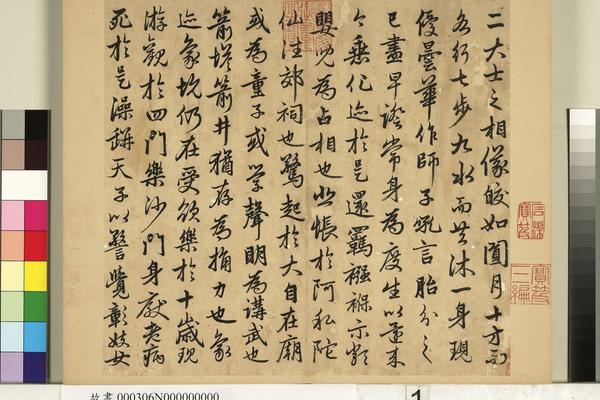 二大士之相儼皎如圓月十方而
各行七步九水而共沐一身現
優曇華作師子吼言胎分之
已盡早證常身為度生以來
今垂化迹於是還羈襁褓示類
嬰兒為占相也悲悵於阿私陀
仙往郊祠也驚起於大自在廟
或為童子或學聲明為講武也
箭塔箭井猶存為捔力也象
迹象坑仍在受欲樂於十歲現
遊觀於四門樂沙門身厭老病
死於是澡缾天子以警覺彰妓女
寶笈三編
故書 000306N000000000
1